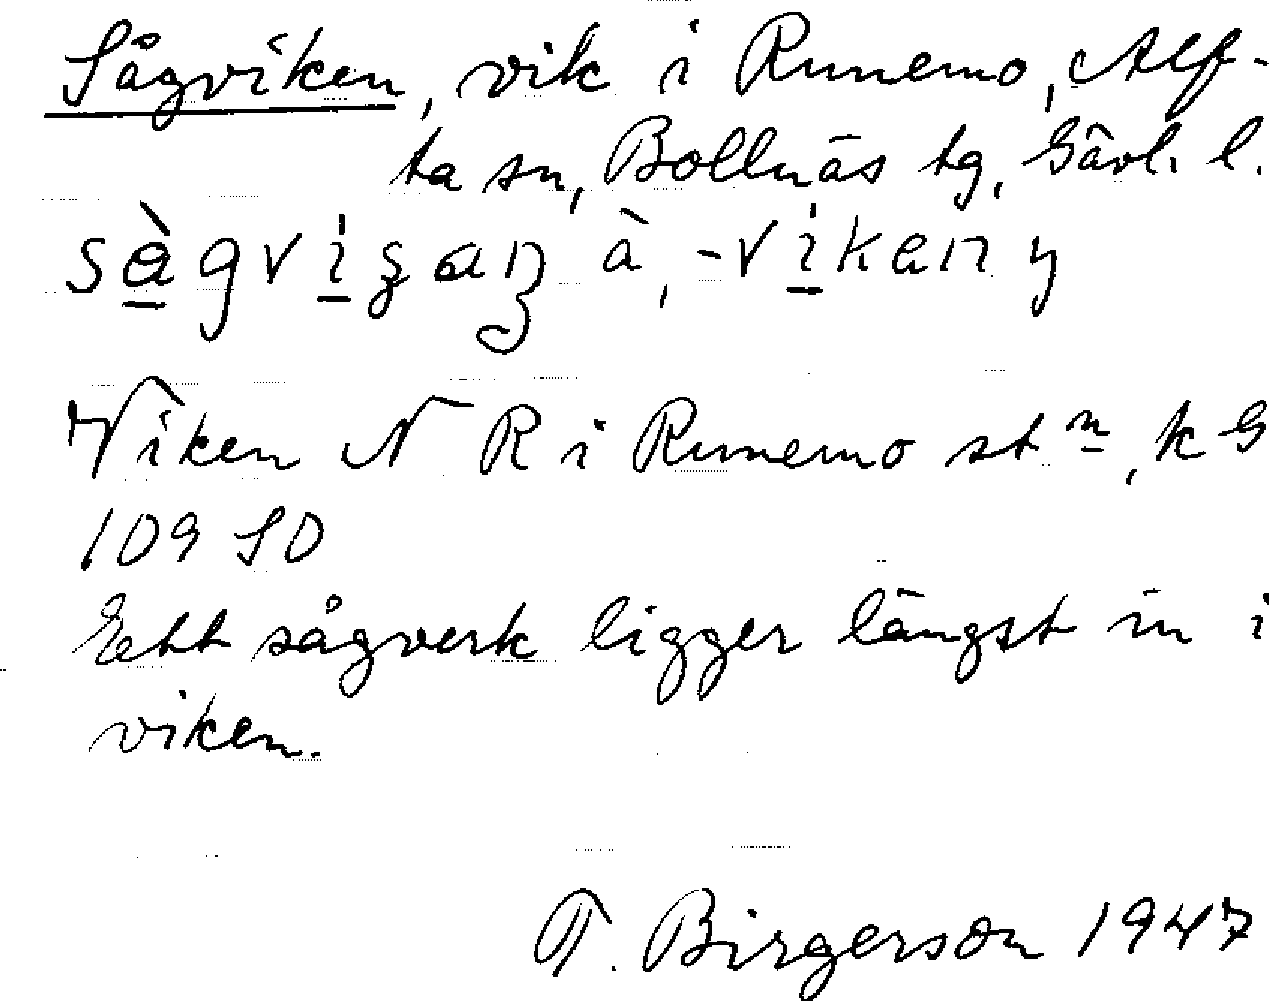 Sågviken, vik i Runemo, Alf-
ta sn, Bollnäs tg, Gävl. l.
à, -vikan y
Viken N R i Runemo stn, k G
109 SO
Ett sågverk ligger längst in i
viken.
T. Birgerson 1947